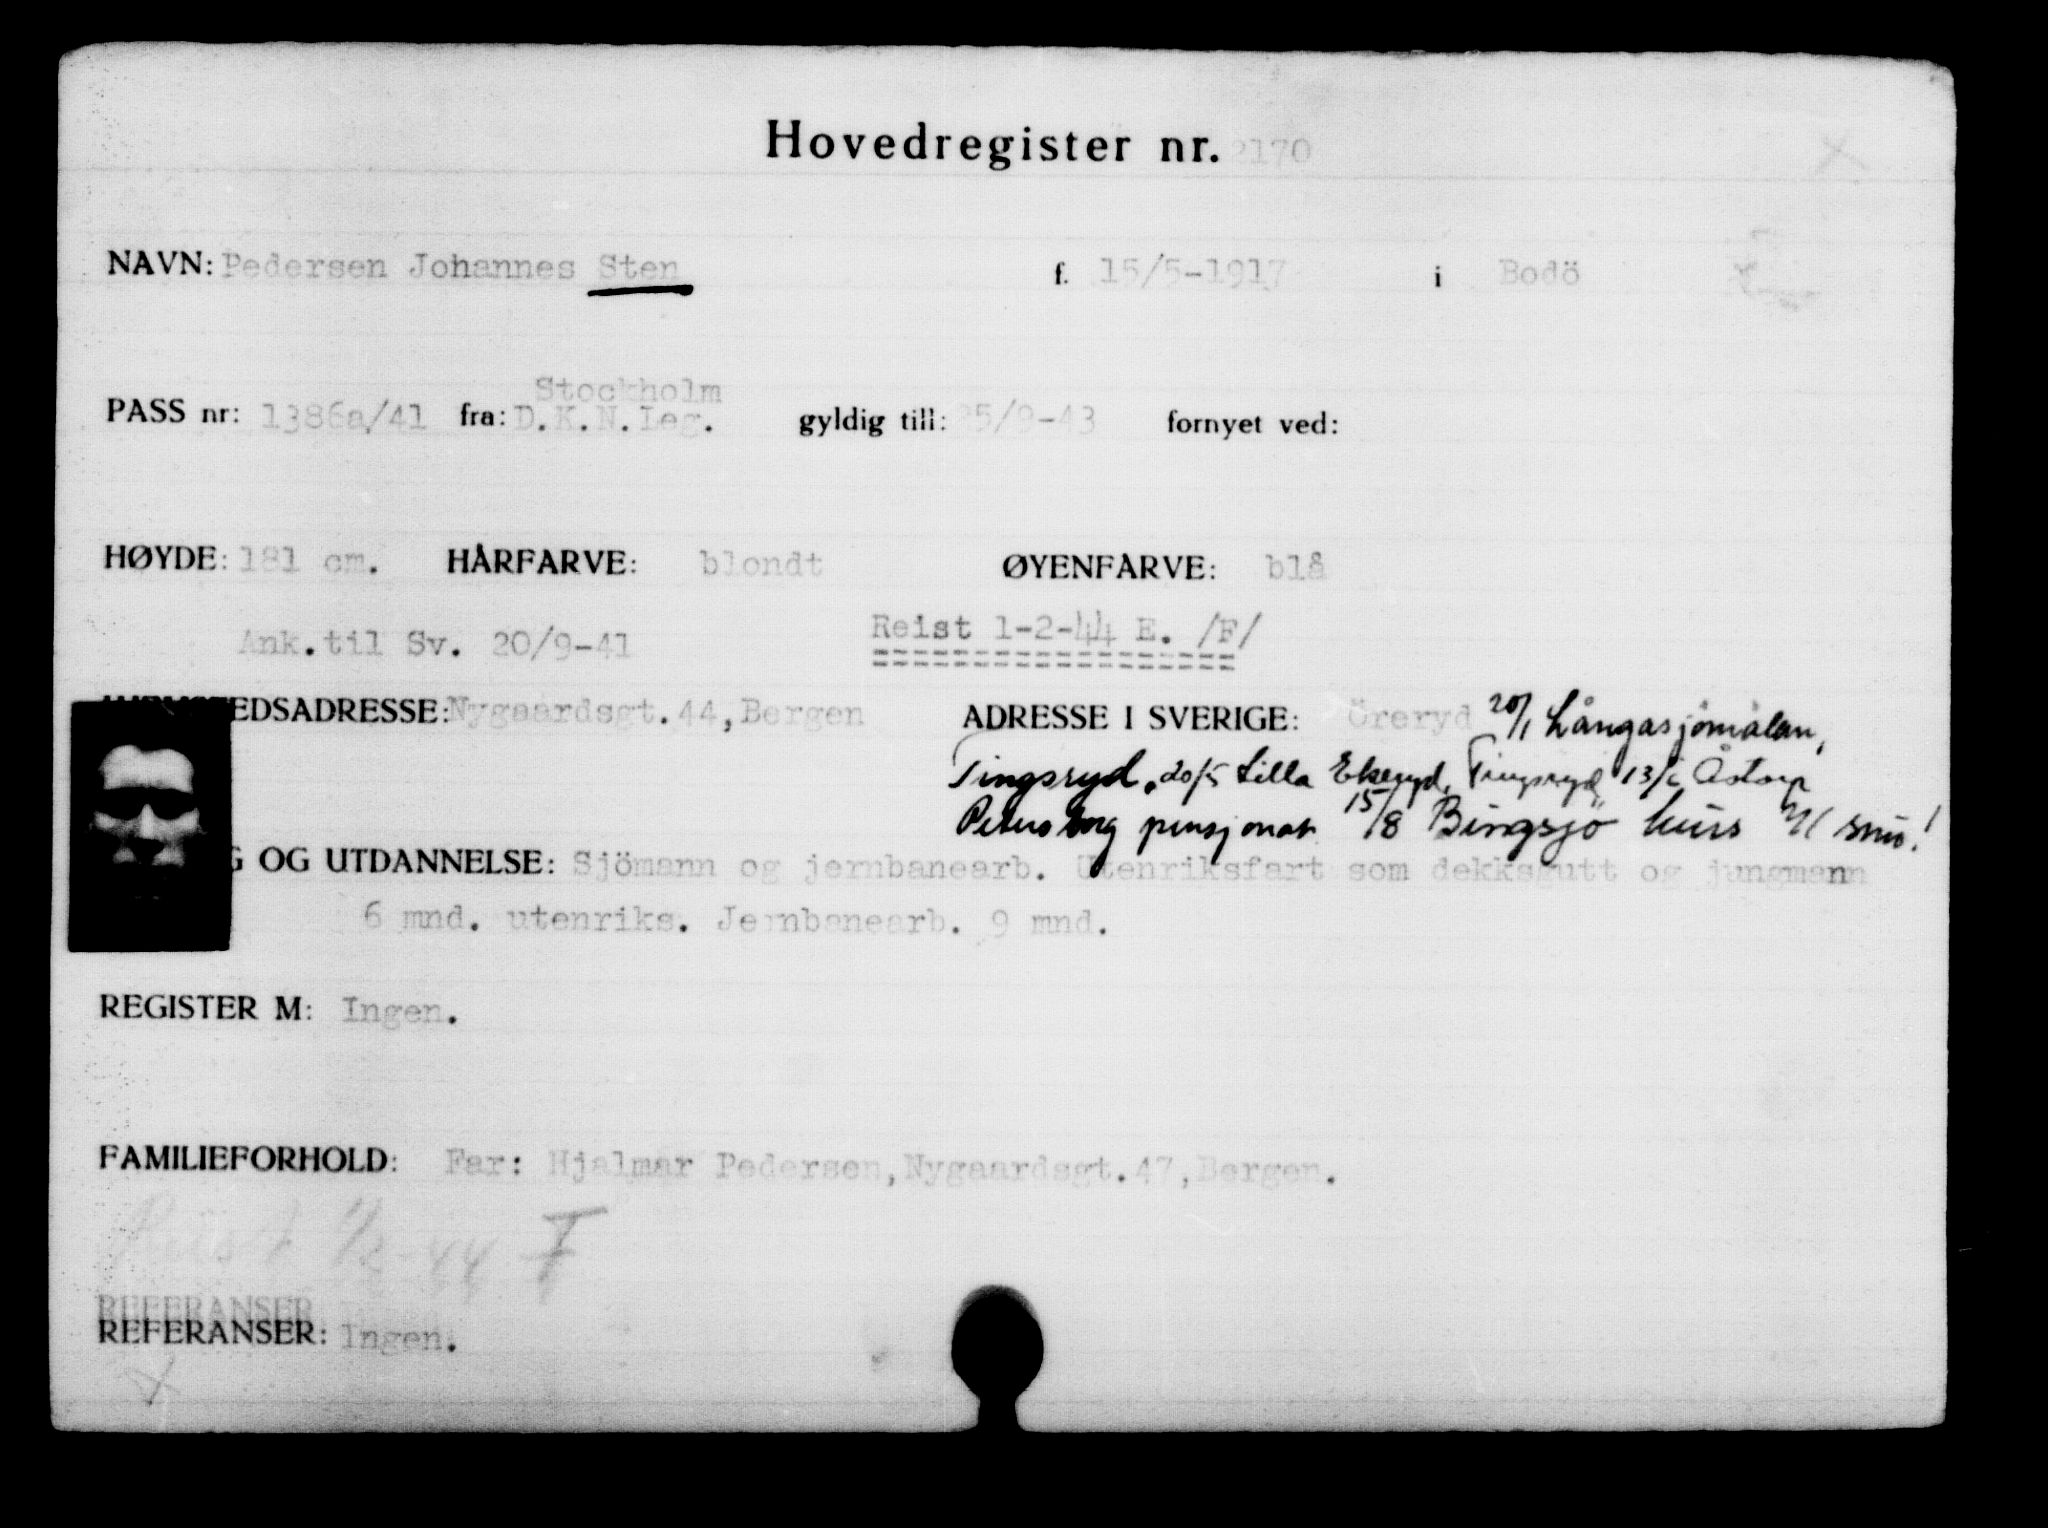 Hovedregister nr. 2170
NAVN: Pedersen Johannes Sten f. 15/5-1917 i Bodö
Stockholm
PASS nr: 1386a/41 fra: D.K.N.Leg. gyldig till: 25/9-43 fornyet ved:
HØYDE: 181 cm. HÅRFARVE: blondt ØYENFARVE: blå
Ank.til Sv. 20/9-41 Reist 1-2-44 E. /F/
EDSADRESSE: Nygaardsgt.44,Bergen ADRESSE I SVERIGE: Öreryd 20/1 Långasjömålan,
Tingsryd, 20/5 Lilla Ekeryd, Tingsryd 13/6 Åstorp
Petersborg pensjonat 15/8 Bingsjö kurs
G OG UTDANNELSE: Sjömann og jernbanearb. Utenriksfart som dekksgutt og jungmann
6 mnd. utenriks. Jernbanearb. 9 mnd.
REGISTER M: Ingen.
FAMILIEFORHOLD: Far: Hjalmar Pedersen,Nygaardsgt.47,Bergen.
Reist 1/2-44 F
REFERANSER
REFERANSER: Ingen.